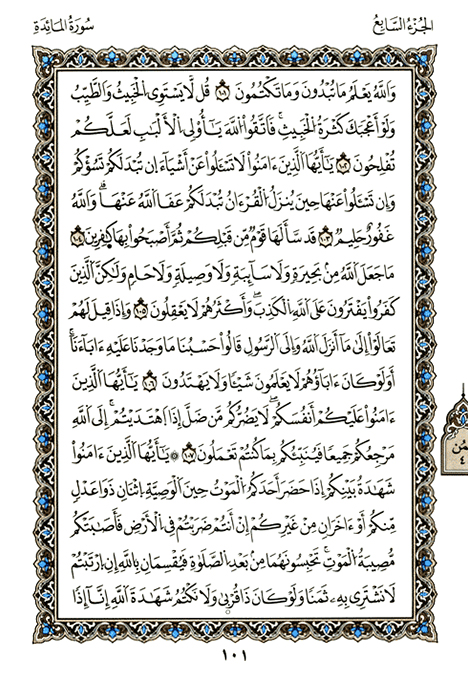 الجُزْءُ السَّابِعُ
سُورَةُ المَائِدَةِ
وَاللَّهُ يَعْلَمُ مَا تُبْدُونَ وَمَا تَكْتُمُونَ ١٠١ قُل لَّا يَسْتَوِى الْخَبِيثُ وَالطَّيِّبُ
وَلَوْ أَعْجَبَكَ كَثْرَةُ الْخَبِيثِ فَاتَّقُوا اللَّهَ يَٰٓأُولِى الْأَلْبَٰبِ لَعَلَّكُمْ
تُفْلِحُونَ ١٠٢ يَٰٓأَيُّهَا الَّذِينَ ءَامَنُوا لَا تَسْـَٔلُوا عَنْ أَشْيَآءَ إِن تُبْدَ لَكُمْ تَسُؤْكُمْ
وَإِن تَسْـَٔلُوا عَنْهَا حِينَ يُنَزَّلُ الْقُرْءَانُ تُبْدَ لَكُمْ عَفَا اللَّهُ عَنْهَا وَاللَّهُ
غَفُورٌ حَلِيمٌ ١٠٣ قَدْ سَأَلَهَا قَوْمٌ مِّن قَبْلِكُمْ ثُمَّ أَصْبَحُوا بِهَا كَٰفِرِينَ ١٠٤
مَا جَعَلَ اللَّهُ مِنۢ بَحِيرَةٍ وَلَا سَآئِبَةٍ وَلَا وَصِيلَةٍ وَلَا حَامٍ وَلَٰكِنَّ الَّذِينَ
كَفَرُوا يَفْتَرُونَ عَلَى اللَّهِ الْكَذِبَ وَأَكْثَرُهُمْ لَا يَعْقِلُونَ ١٠٥ وَإِذَا قِيلَ لَهُمْ
تَعَالَوْا إِلَىٰ مَآ أَنزَلَ اللَّهُ وَإِلَى الرَّسُولِ قَالُوا حَسْبُنَا مَا وَجَدْنَا عَلَيْهِ ءَابَآءَنَآ
أَوَلَوْ كَانَ ءَابَآؤُهُمْ لَا يَعْلَمُونَ شَيْـًٔا وَلَا يَهْتَدُونَ ١٠٦ يَٰٓأَيُّهَا الَّذِينَ
ءَامَنُوا عَلَيْكُمْ أَنفُسَكُمْ لَا يَضُرُّكُم مَّن ضَلَّ إِذَا اهْتَدَيْتُمْ إِلَى اللَّهِ
مَرْجِعُكُمْ جَمِيعًا فَيُنَبِّئُكُم بِمَا كُنتُمْ تَعْمَلُونَ ١٠٧ ۞ يَٰٓأَيُّهَا الَّذِينَ ءَامَنُوا
شَهَٰدَةُ بَيْنِكُمْ إِذَا حَضَرَ أَحَدَكُمُ الْمَوْتُ حِينَ الْوَصِيَّةِ اثْنَانِ ذَوَا عَدْلٍ
مِّنكُمْ أَوْ ءَاخَرَانِ مِنْ غَيْرِكُمْ إِنْ أَنتُمْ ضَرَبْتُمْ فِى الْأَرْضِ فَأَصَٰبَتْكُم
مُّصِيبَةُ الْمَوْتِ تَحْبِسُونَهُمَا مِنۢ بَعْدِ الصَّلَوٰةِ فَيُقْسِمَانِ بِاللَّهِ إِنِ ارْتَبْتُمْ
لَا نَشْتَرِى بِهِۦ ثَمَنًا وَلَوْ كَانَ ذَا قُرْبَىٰ وَلَا نَكْتُمُ شَهَٰدَةَ اللَّهِ إِنَّآ إِذًا
١٠١